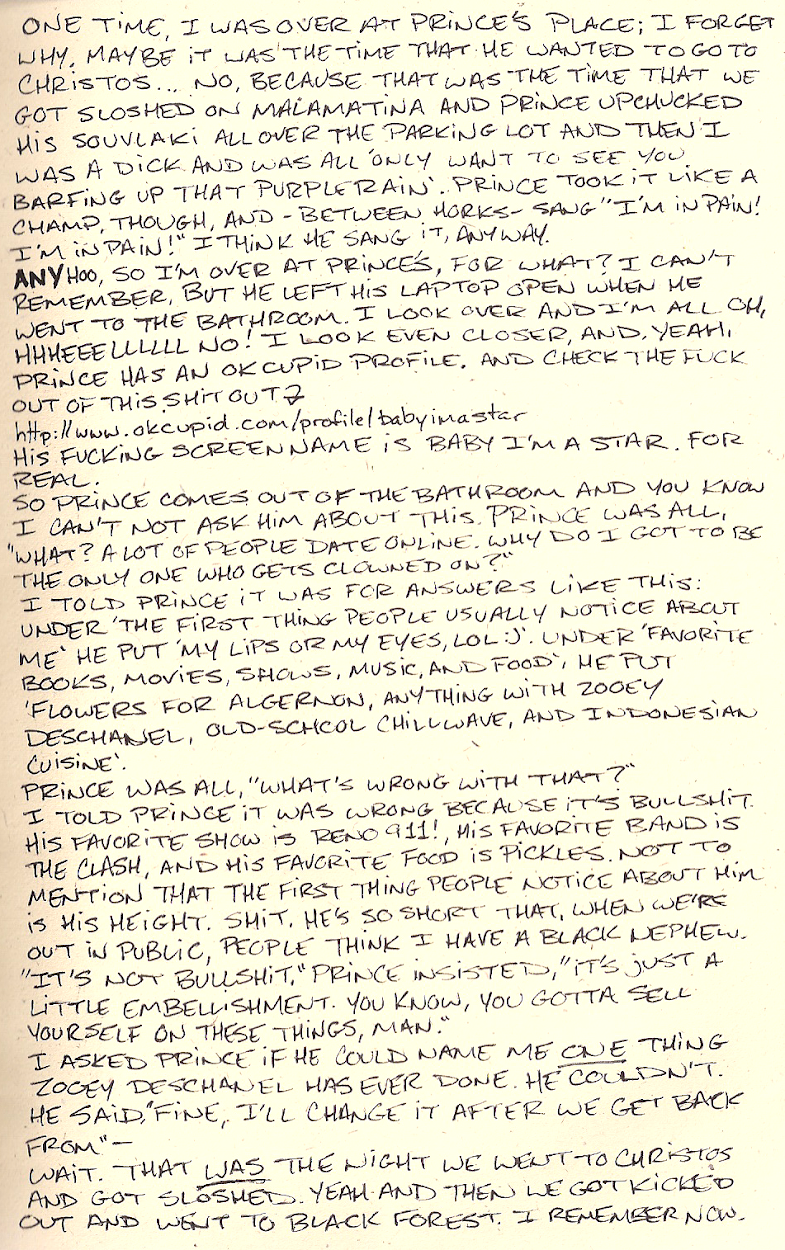 ONE TIME, I WAS OVER AT PRINCE'S PLACE; I FORGET
WHY. MAYBE IT WAS THE TIME THAT HE WANTED TO GO TO
CHRISTOS... NO, BECAUSE THAT WAS THE TIME THAT WE
GOT SLOSHED ON MALAMATINA AND PRINCE UPCHUCKED
HIS SOUVLAKI ALL OVER THE PARKING LOT AND THEN I
WAS A DICK AND WAS ALL 'ONLY WANT TO SEE YOU
BARFING UP THAT PURPLE RAIN'. PRINCE TOOK IT LIKE A
CHAMP, THOUGH, AND - BETWEEN HORKS - SANG "I'M IN PAIN!
I'M IN PAIN!" I THINK HE SANG IT, ANYWAY.
ANYHOO, SO I'M OVER AT PRINCE'S, FOR WHAT? I CAN'T
REMEMBER, BUT HE LEFT HIS LAPTOP OPEN WHEN HE
WENT TO THE BATHROOM. I LOOK OVER AND I'M ALL OH,
HHHEEELLLLLL NO! I LOOK EVEN CLOSER, AND, YEAH,
PRINCE HAS AN OKCUPID PROFILE. AND CHECK THE FUCK
OUT OF THIS SHIT OUT
http://www.okcupid.com/profile/babyimastar
HIS FUCKING SCREEN NAME IS BABY I'M A STAR. FOR
REAL.
SO PRINCE COMES OUT OF THE BATHROOM AND YOU KNOW
I CAN'T NOT ASK HIM ABOUT THIS. PRINCE WAS ALL,
"WHAT? A LOT OF PEOPLE DATE ONLINE. WHY DO I GOT TO BE
THE ONLY ONE WHO GETS CLOWNED ON?"
I TOLD PRINCE IT WAS FOR ANSWERS LIKE THIS:
UNDER 'THE FIRST THING PEOPLE USUALLY NOTICE ABOUT
ME' HE PUT 'MY LIPS OR MY EYES, LOL :)'. UNDER 'FAVORITE
BOOKS, MOVIES, SHOWS, MUSIC, AND FOOD', HE PUT
'FLOWERS FOR ALGERNON, ANYTHING WITH ZOOEY
DESCHANEL, OLD-SCHOOL CHILLWAVE, AND INDONESIAN
CUISINE'.
PRINCE WAS ALL, "WHAT'S WRONG WITH THAT?"
I TOLD PRINCE IT WAS WRONG BECAUSE IT'S BULLSHIT.
HIS FAVORITE SHOW IS RENO 911!, HIS FAVORITE BAND IS
THE CLASH, AND HIS FAVORITE FOOD IS PICKLES. NOT TO
MENTION THAT THE FIRST THING PEOPLE NOTICE ABOUT HIM
IS HIS HEIGHT. SHIT. HE'S SO SHORT THAT, WHEN WE'RE
OUT IN PUBLIC, PEOPLE THINK I HAVE A BLACK NEPHEW.
"IT'S NOT BULLSHIT," PRINCE INSISTED, "IT'S JUST A
LITTLE EMBELLISHMENT. YOU KNOW, YOU GOTTA SELL
YOURSELF ON THESE THINGS, MAN."
I ASKED PRINCE IF HE COULD NAME ME ONE THING
ZOOEY DESCHANEL HAS EVER DONE. HE COULDN'T.
HE SAID, "FINE, I'LL CHANGE IT AFTER WE GET BACK
FROM" -
WAIT. THAT WAS THE NIGHT WE WENT TO CHRISTOS
AND GOT SLOSHED. YEAH AND THEN WE GOT KICKED
OUT AND WENT TO BLACK FOREST. I REMEMBER NOW.